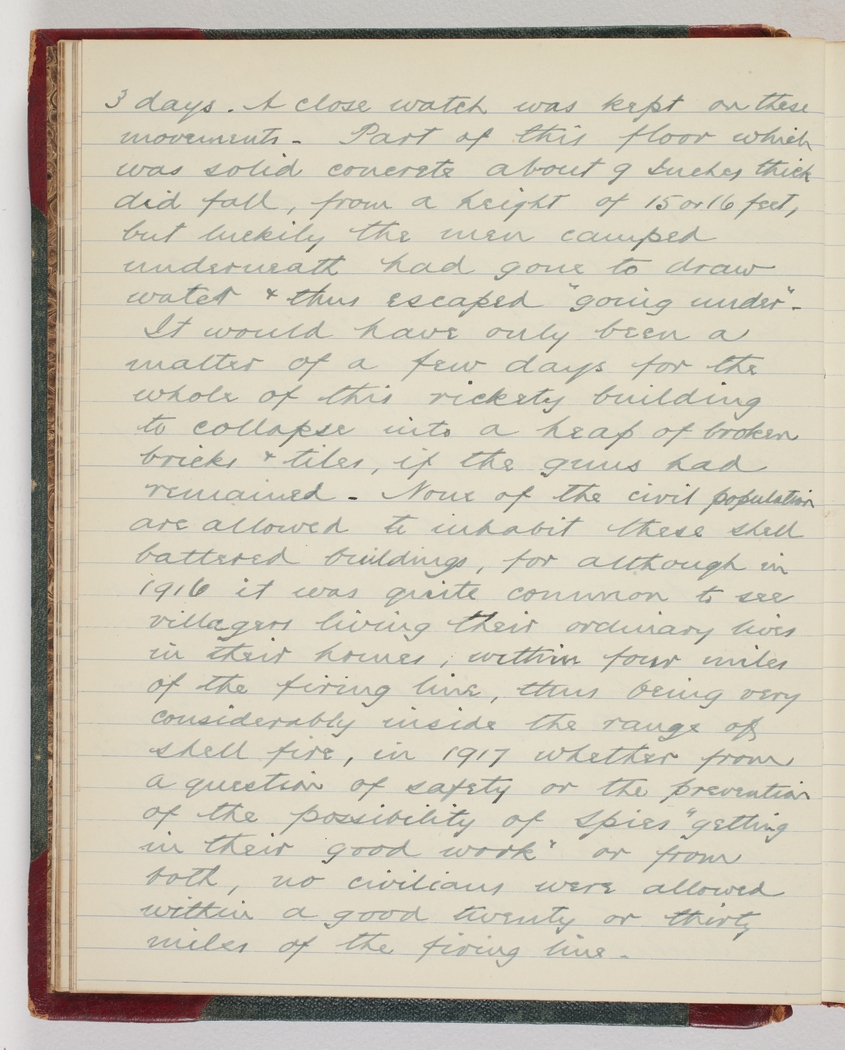 3 days. A close watch was kept on these
movements. Part of this floor which
was solid concrete about 9 Inches thick
did fall, from a height of 15 or 16 feet,
but luckily the men camped
underneath had gone to draw
water & thus escaped "going under".
It would have only been a
matter of a few days for the
whole of this rickety building
to collapse into a heap of broken
bricks & tiles, if the guns had
remained. None of the civil population
are allowed to inhabit these shell
battered buildings, for although in
1916 it was quite common to see
villagers living their ordinary lives
in their homes, within four miles
of the firing line, thus being very
considerably inside the range of
shell fire, in 1917 whether from
a question of safety or the prevention
of the possibility of Spies "getting
in their good work" or from
both, no civilians were allowed
within a good twenty or thirty
miles of the firing line.